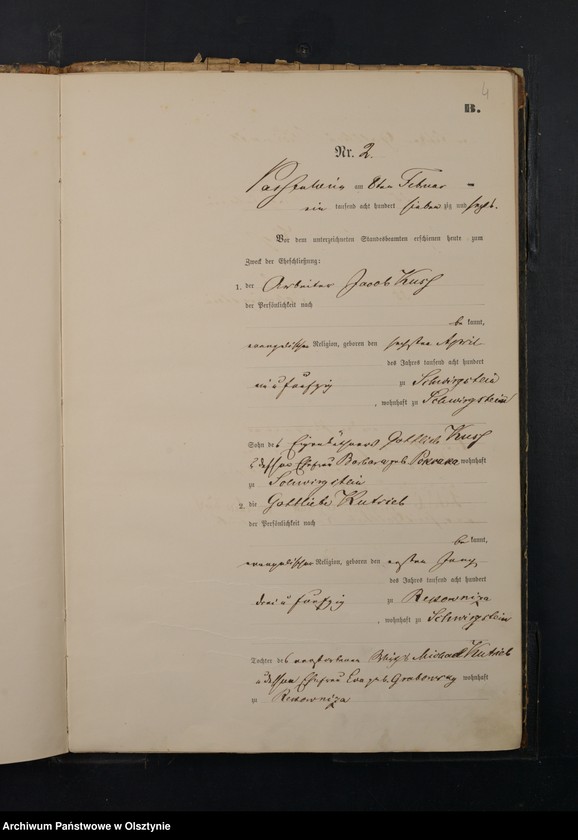 4
B.
Nr. 2.
Passenheim am 8ten Februar
ein tausend acht hundert sieben zig und sechs.
Vor dem unterzeichneten Standesbeamten erschienen heute zum
Zweck der Eheschließung:
1. der Arbeiter Jacob Kusch
der Persönlichkeit nach
be kannt,
evangelischer Religion, geboren den sechsten April
des Jahres tausend acht hundert
ein u fünfzig zu Schwirgstein
, wohnhaft zu Schwirgstein
Sohn des Eigenkäthners Gottlieb Kusch
u dessen Ehefrau Barbara geb. wohnhaft
zu Schwirgstein
2. die Gottliebe Kutrieb
der Persönlichkeit nach
be kannt,
evangelischer Religion, geboren den ersten
des Jahres tausend acht hundert
drei u fünfzig zu
, wohnhaft zu Schwirgstein
Tochter des verstorbenen Michael Kutrieb
u dessen Ehefrau Eva geb. Grabowsky wohnhaft
zu
Archiwum Państwowe w Olsztynie